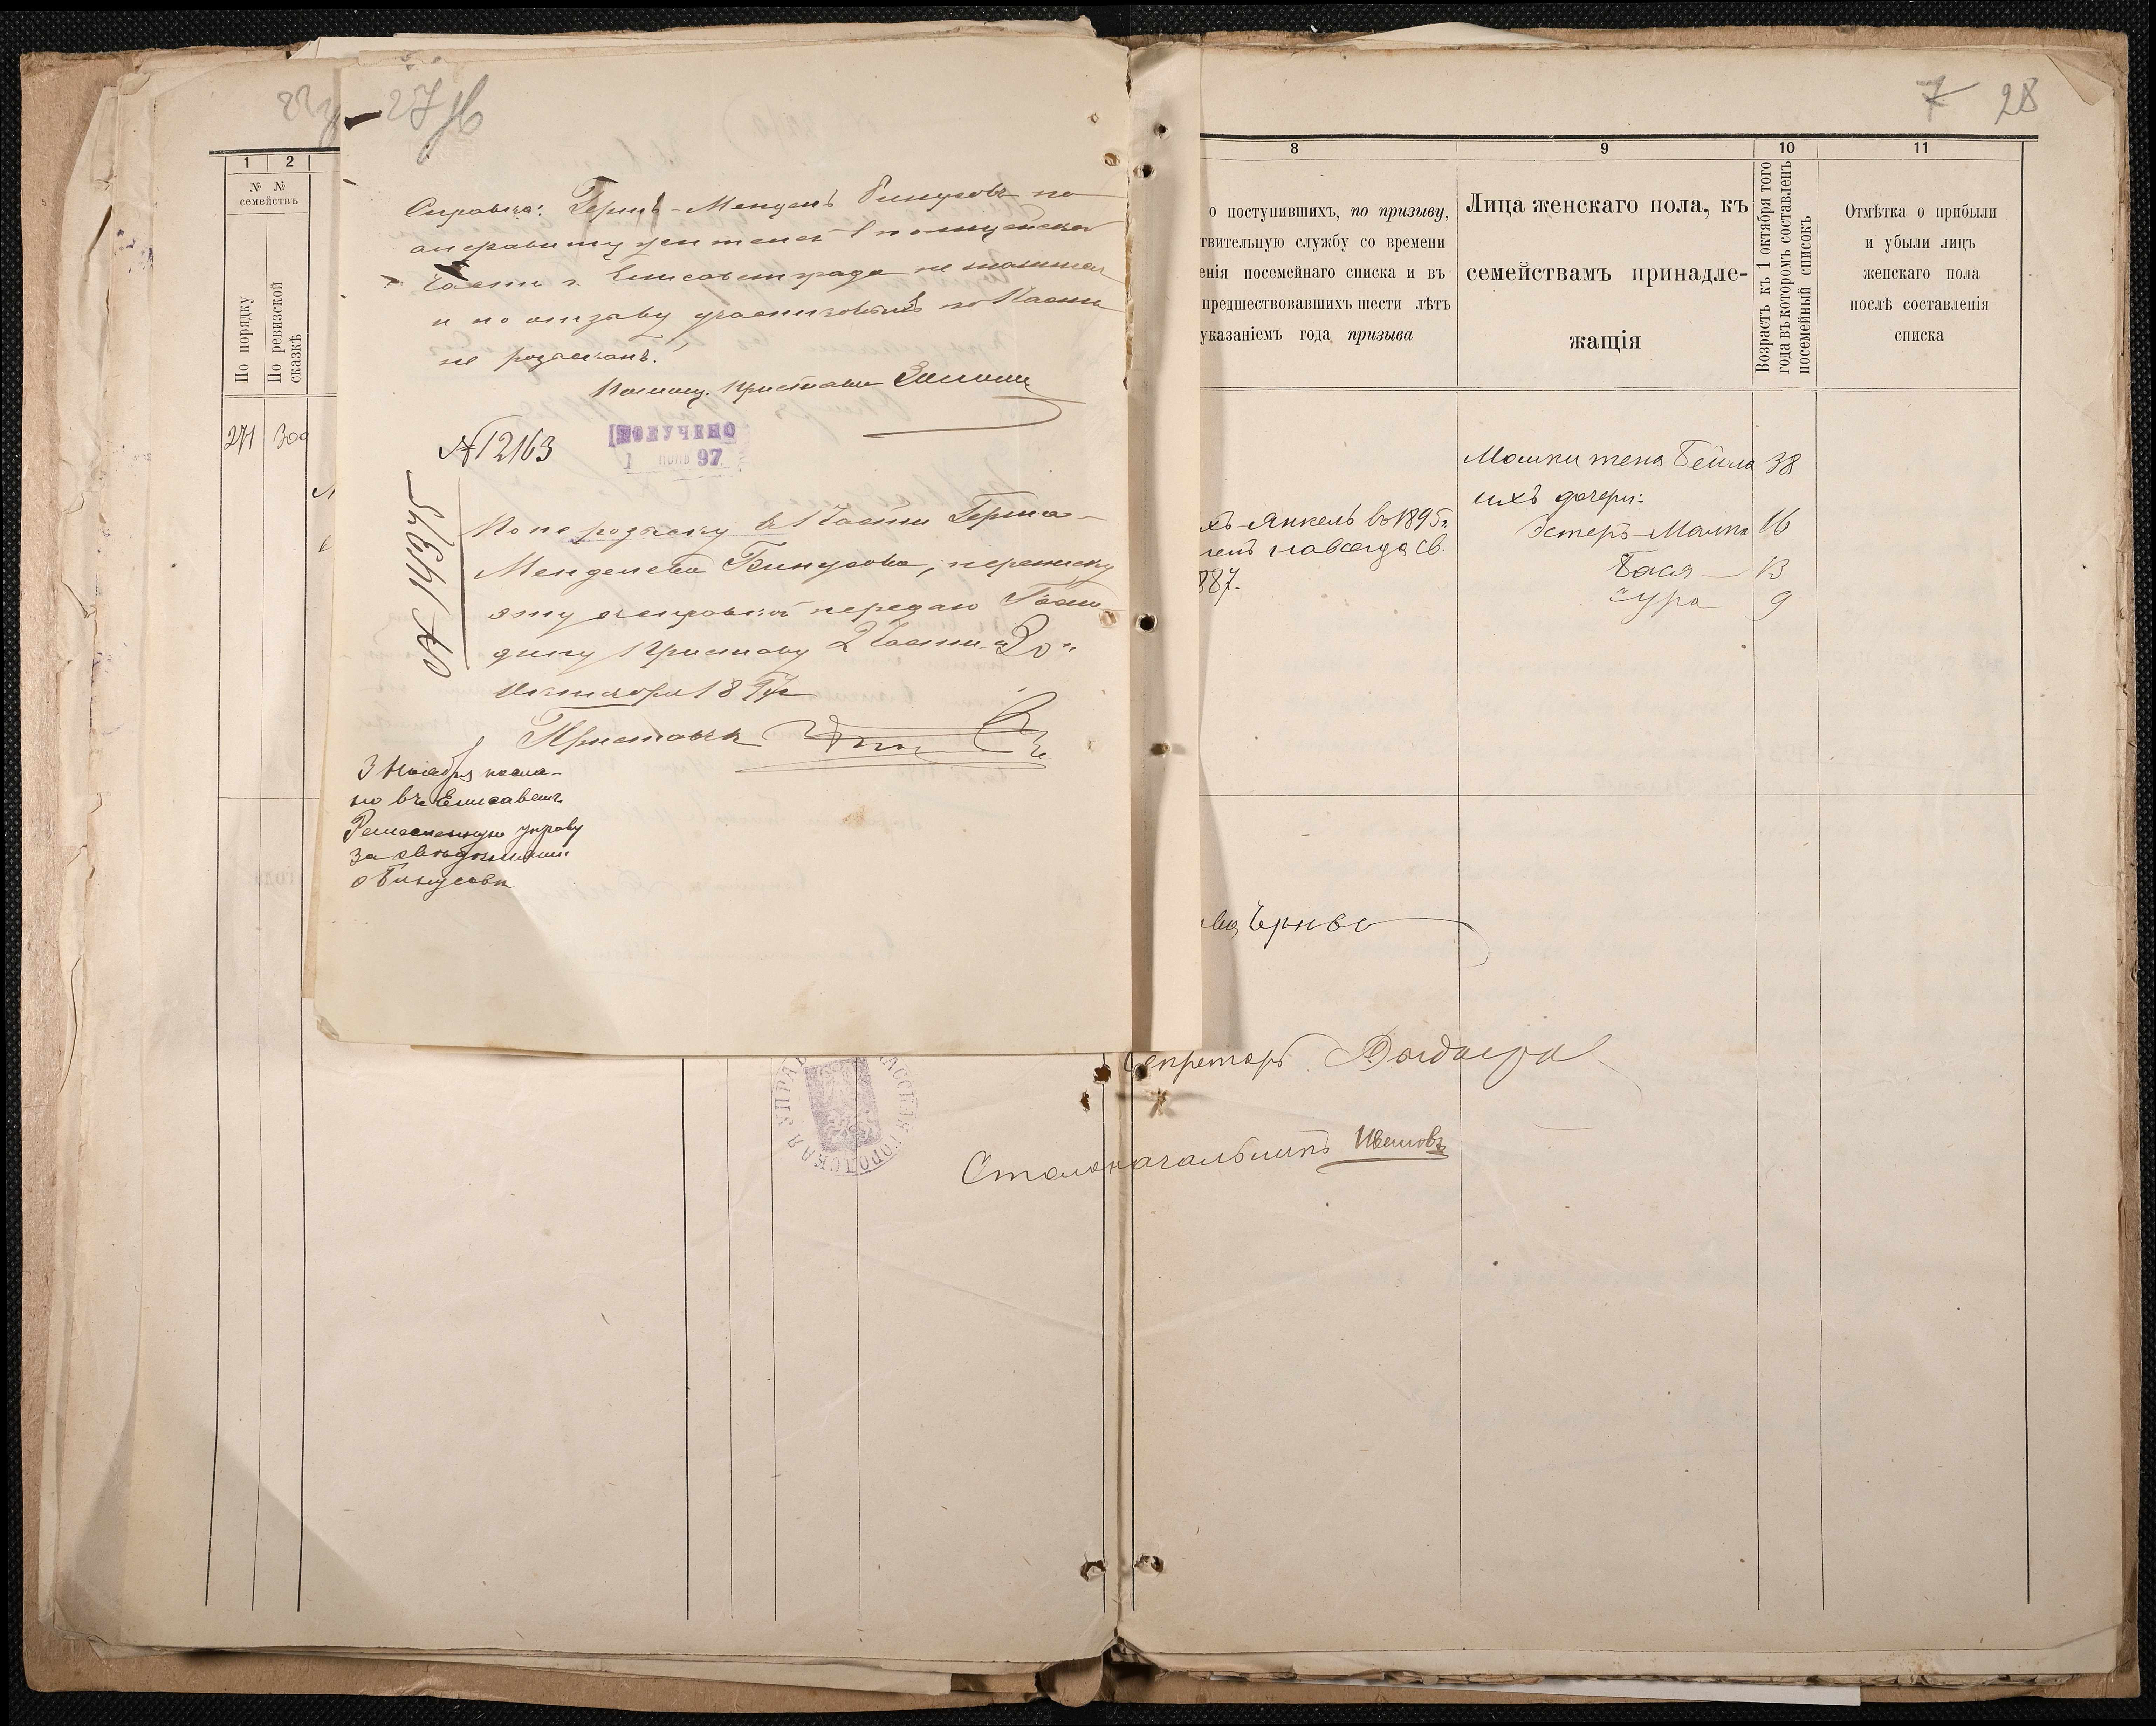 27 об
Справка: Герш-Мендель Бинусовъ по
алфавиту жителей 1 полицейской
части г. Елисаветграда не значится
и по отзыву участковыхъ по части
не розысканъ.
Помощ. Пристава
№ 12163
ПОЛУЧЕНО
1 НОЯБ 97
По не розыску въ 1 части Герша-
Менделева Бинусова, переписку
эту съ справкой передаю Госпо-
дину Приставу 2 части. "30"
Октября 1897 г.
Приставъ
3 Ноября посла-
но въ Елисаветг.
Ремесленную управу
за свѣдѣніями
о Бинусовѣ
1
2
№ №
семействъ
По порядку
По ревизской
сказкѣ
271
300
7 28
8
о поступившихъ, по призыву,
твительную службу со времени
енія посемейнаго списка и въ
предшествовавшихъ шести лѣтъ
указаніемъ года призыва
хъ-Янкель въ 1895 г.
ленъ навсегда св.
887.
9
Лица женскаго пола, къ
семействамъ принадле-
жащія
10
Возрастъ къ 1 октября того
года въ которомъ составленъ
посемейный списокъ
11
Отмѣтка о прибыли
и убыли лицъ
женскаго пола
послѣ составленія
списка
Мошки жена Бейла 38
ихъ дочери:
Эстеръ-Малка 16
Бася 13
Сура 9
Секретарь
Столоначальникъ
ГОРОДСКАЯ УПРА